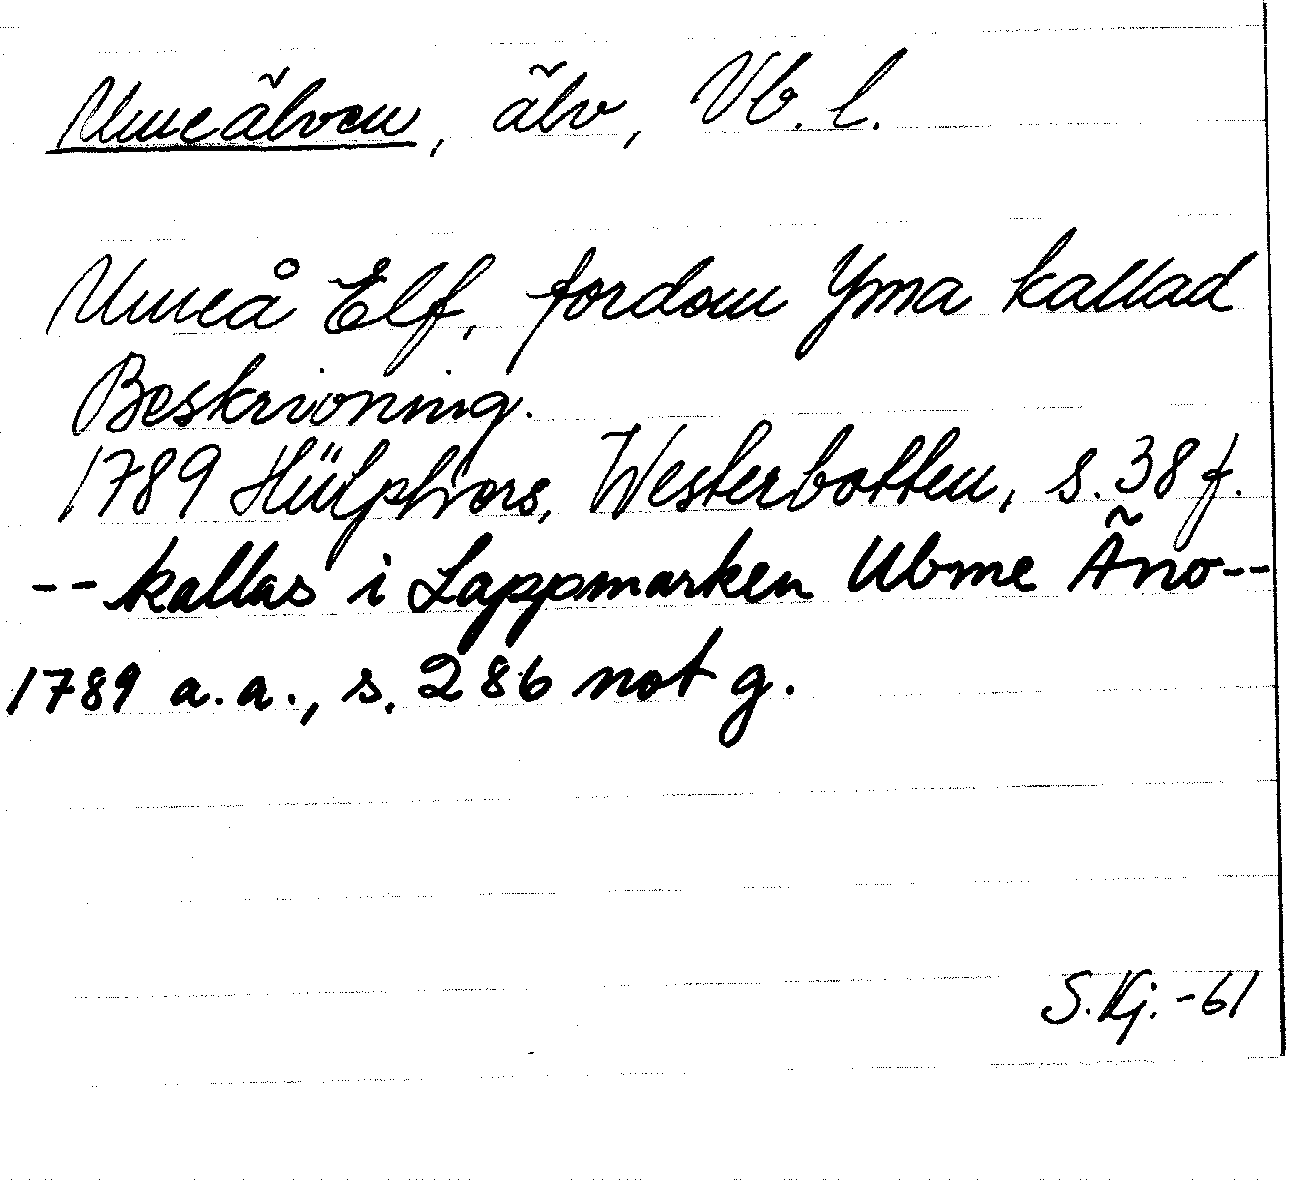 Umeälven, älv, Vb. l.
Umeå Elf, fordom Yma kallad
Beskrivning.
1789 Hülphers, Westerbotten, s. 38 f.
-- kallas i Lappmarken Ubme Äno --
1789 a. a., s. 286 not g.
S. Kj. -61